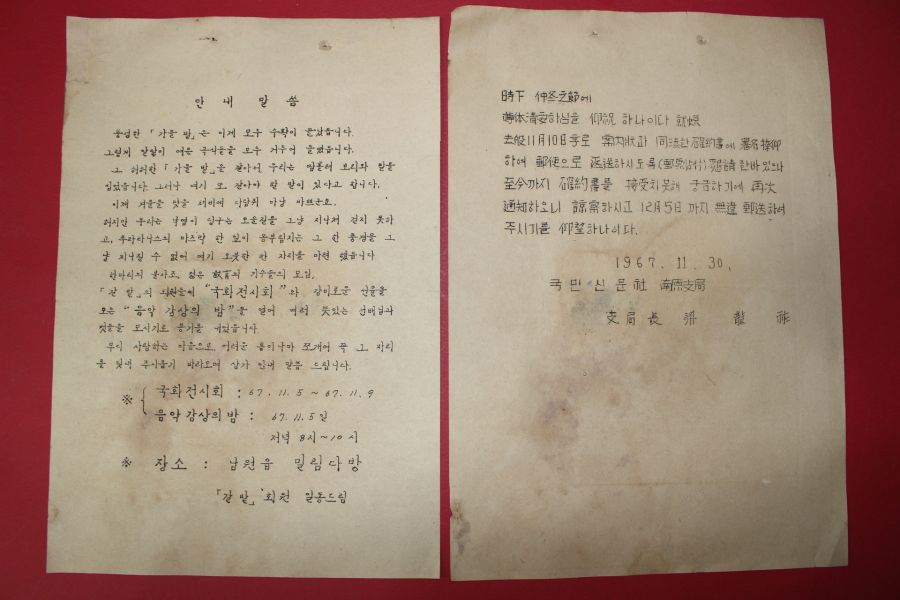 안내말씀
풍성한 「가을 밭」은 이제 모두 수확이 끝났습니다.
그렇게 알알이 여문 곡식들을 모두 거두어 들였습니다.
그 허허한 「가을 밭」을 갈아서 우리는 보리와 밀을
심었습니다. 그러나 여기 또 갈아야 할 밭이 있다고 합니다.
이제 겨울을 맞을 채비에 마냥 바쁘군요.
하지만 우리는 그냥 지나쳐 걷지 못하
고, 한 잎이 몸부림치는 그 한 풍경을 그
냥 지나칠 수 없어 여기 조촐한 한 자리를 마련 했습니다
젊은 기수들의 모임,
「갈 밭」의 회원들이 "국화전시회"와 감미로운 선율을
모은 "음악 감상의 밤"을 열어 여러 뜻있는 선배님과
벗들을 모시기로 용기를 내었습니다.
우리 사랑하는 마음으로, 어려운 틈이나마 쪼개어 꼭 그 자리
를 빛내 주시옵기 바라오며 삼가 안내 말씀 드립니다.
※ 국화전시회 : 67.11.5 ~ 67.11.9
음악감상의밤 : 67.11.5일
저녁 8시~10시
※ 장소 : 남원읍 밀림다방
「갈밭」회원 일동드림
時下 仲冬之節에
尊体淸安하심을 仰祝 하나이다 就煩
去般11月10日字로 案内狀과 同封한 確約書에 署名捺印
하여 郵便으로 返送하시도록 懇請한바있으나
至今까지 確約書를 接受치못해 궁금하기에 再次
通知하오니 諒察하시고 12月5日까지 無違 郵送하여
주시기를 仰望하나이다.
1967. 11. 30.
국민신문社 南原支局
支局長 梁